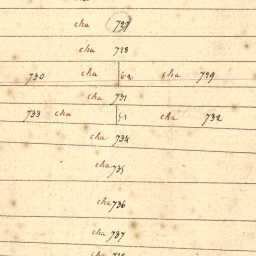 cha 727
cha 728
730 cha cha 729
cha 731
733 cha 51 cha 732
cha 734
cha 735
cha 736
cha 737
cha